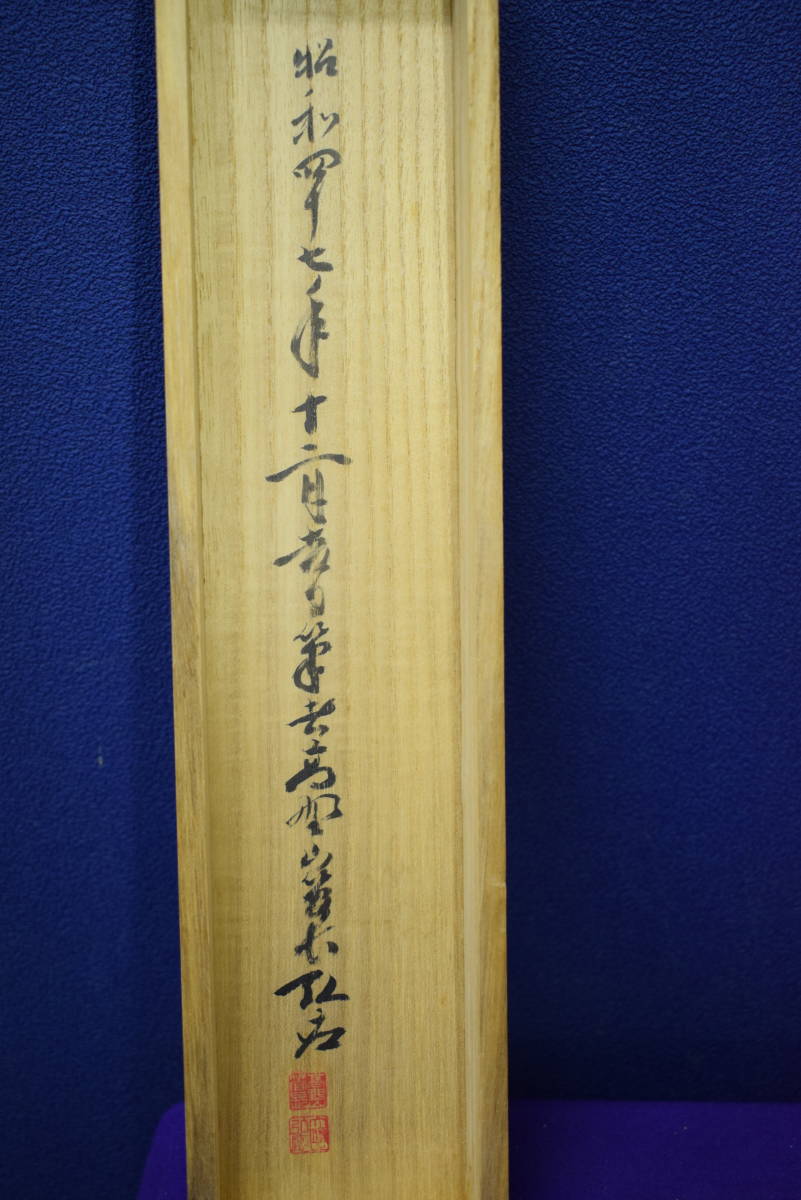 昭和四十七年十二月吉日筆者高野山管長弘